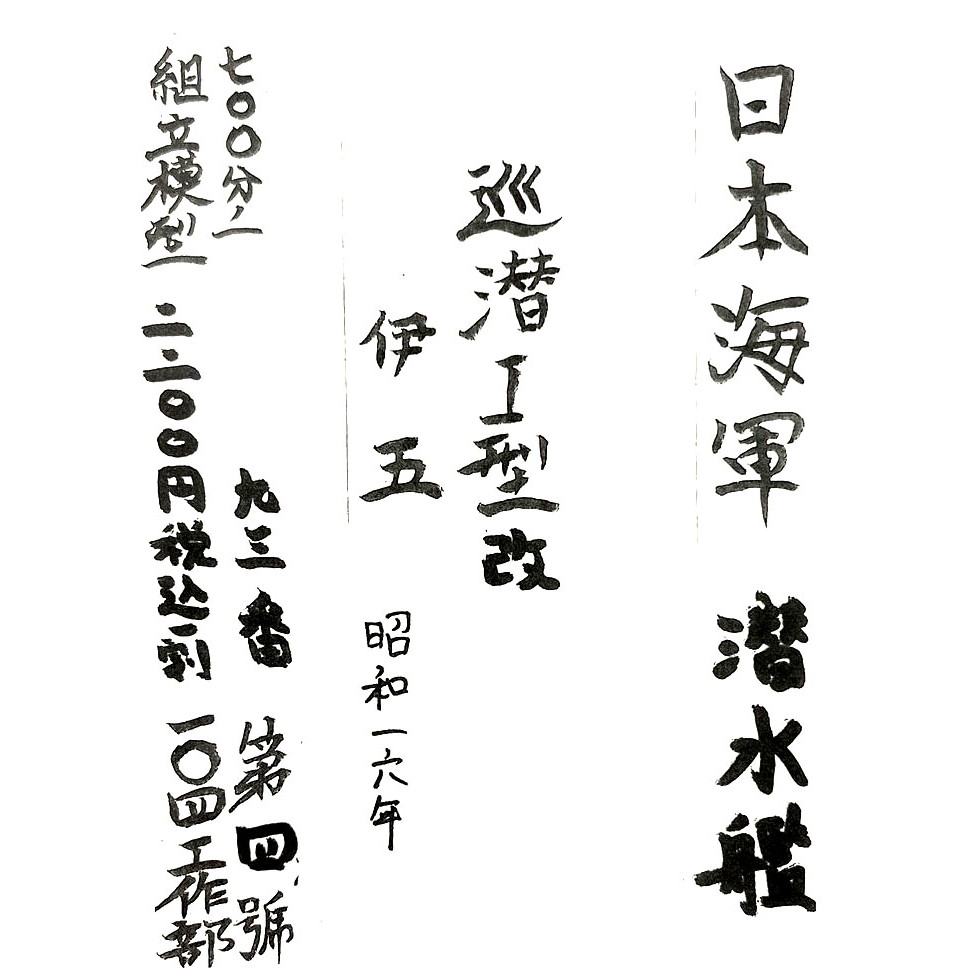 日本海軍 潜水艦
巡潜工型改
伊五 昭和一六年
七〇〇分ノ一 九三番 第四號
組立模型 二二〇〇円税込一割 一〇四工作部